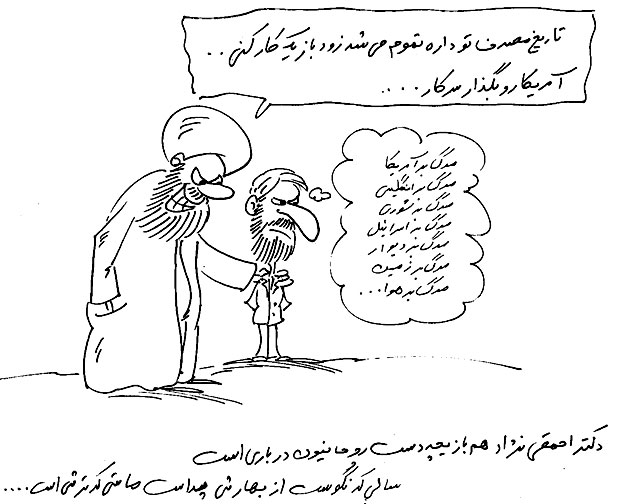 تاریخ مصرف تو داره تموم می شد زود باز یک کار کنی . .
آمریکا رو بگذار سر کار . . . .
مرگ بر آمریکا
مرگ بر انگلیس
مرگ بر شوروی
مرگ بر اسرائیل
مرگ بر دیوار
مرگ بر زمین
مرگ بر هوا . . .
دکتر احمقی نژاد هم بازیچه دست روحانیون درباری است
سالی که نکوست از بهارش پیداست ماستی که ترش است . . . .